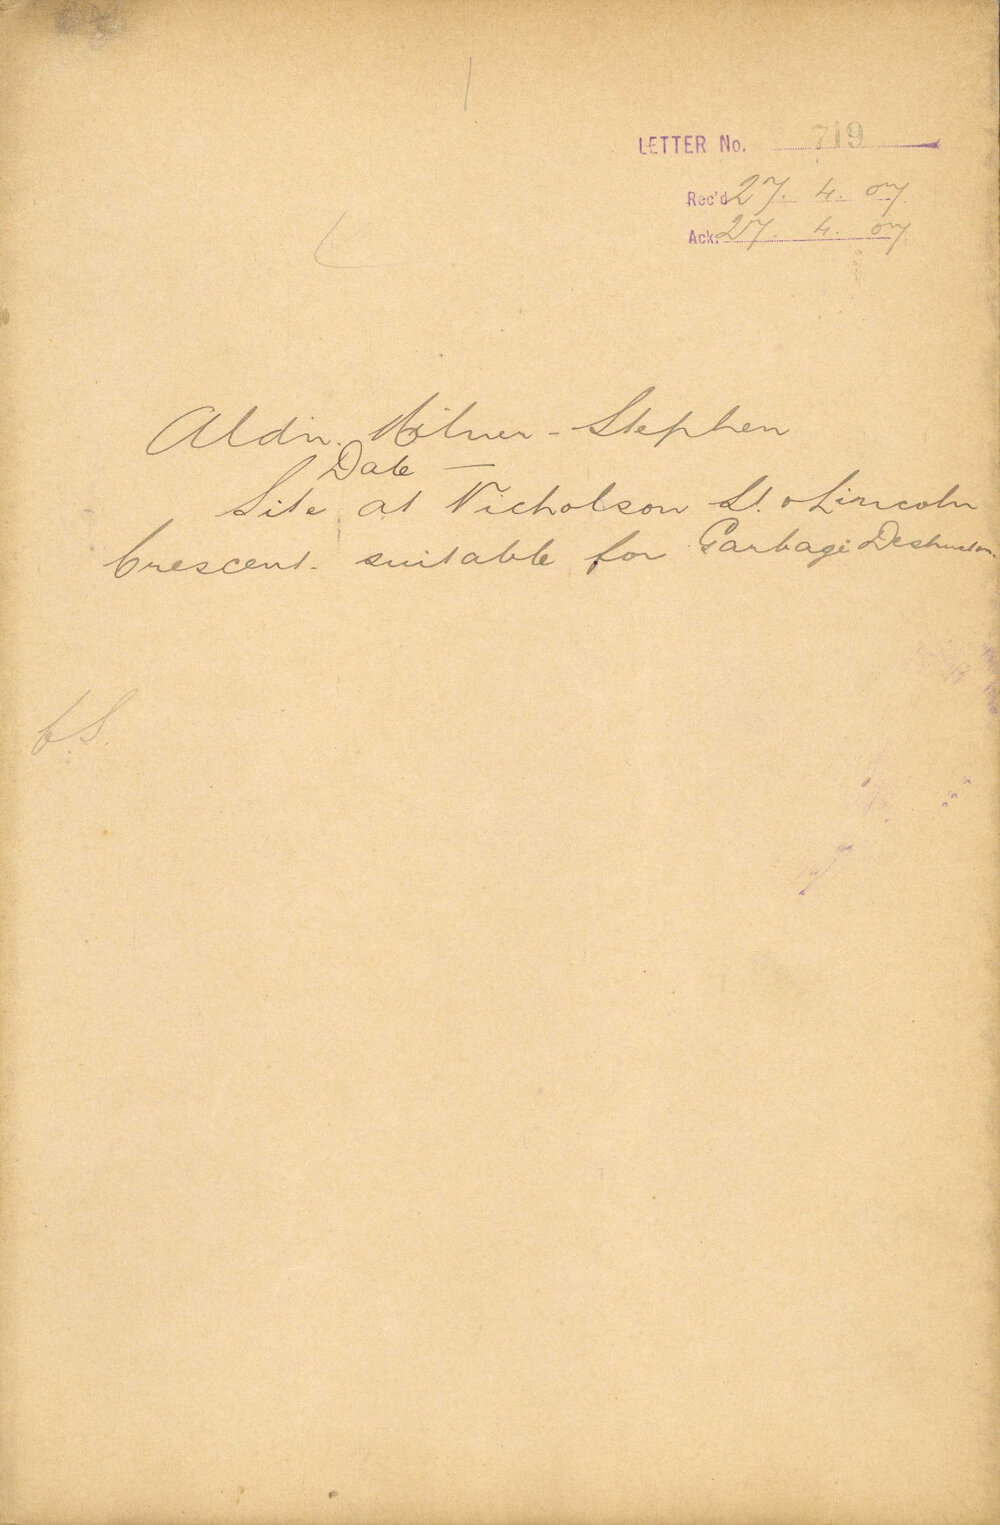 LETTER No. 719
Rec'd 27. 4. 07
Ack. 27. 4. 07
Aldn. Milner-Stephen
Date —
Site at Nicholson St. & Lincoln
Crescent. suitable for Garbage Destructor.
C.S.